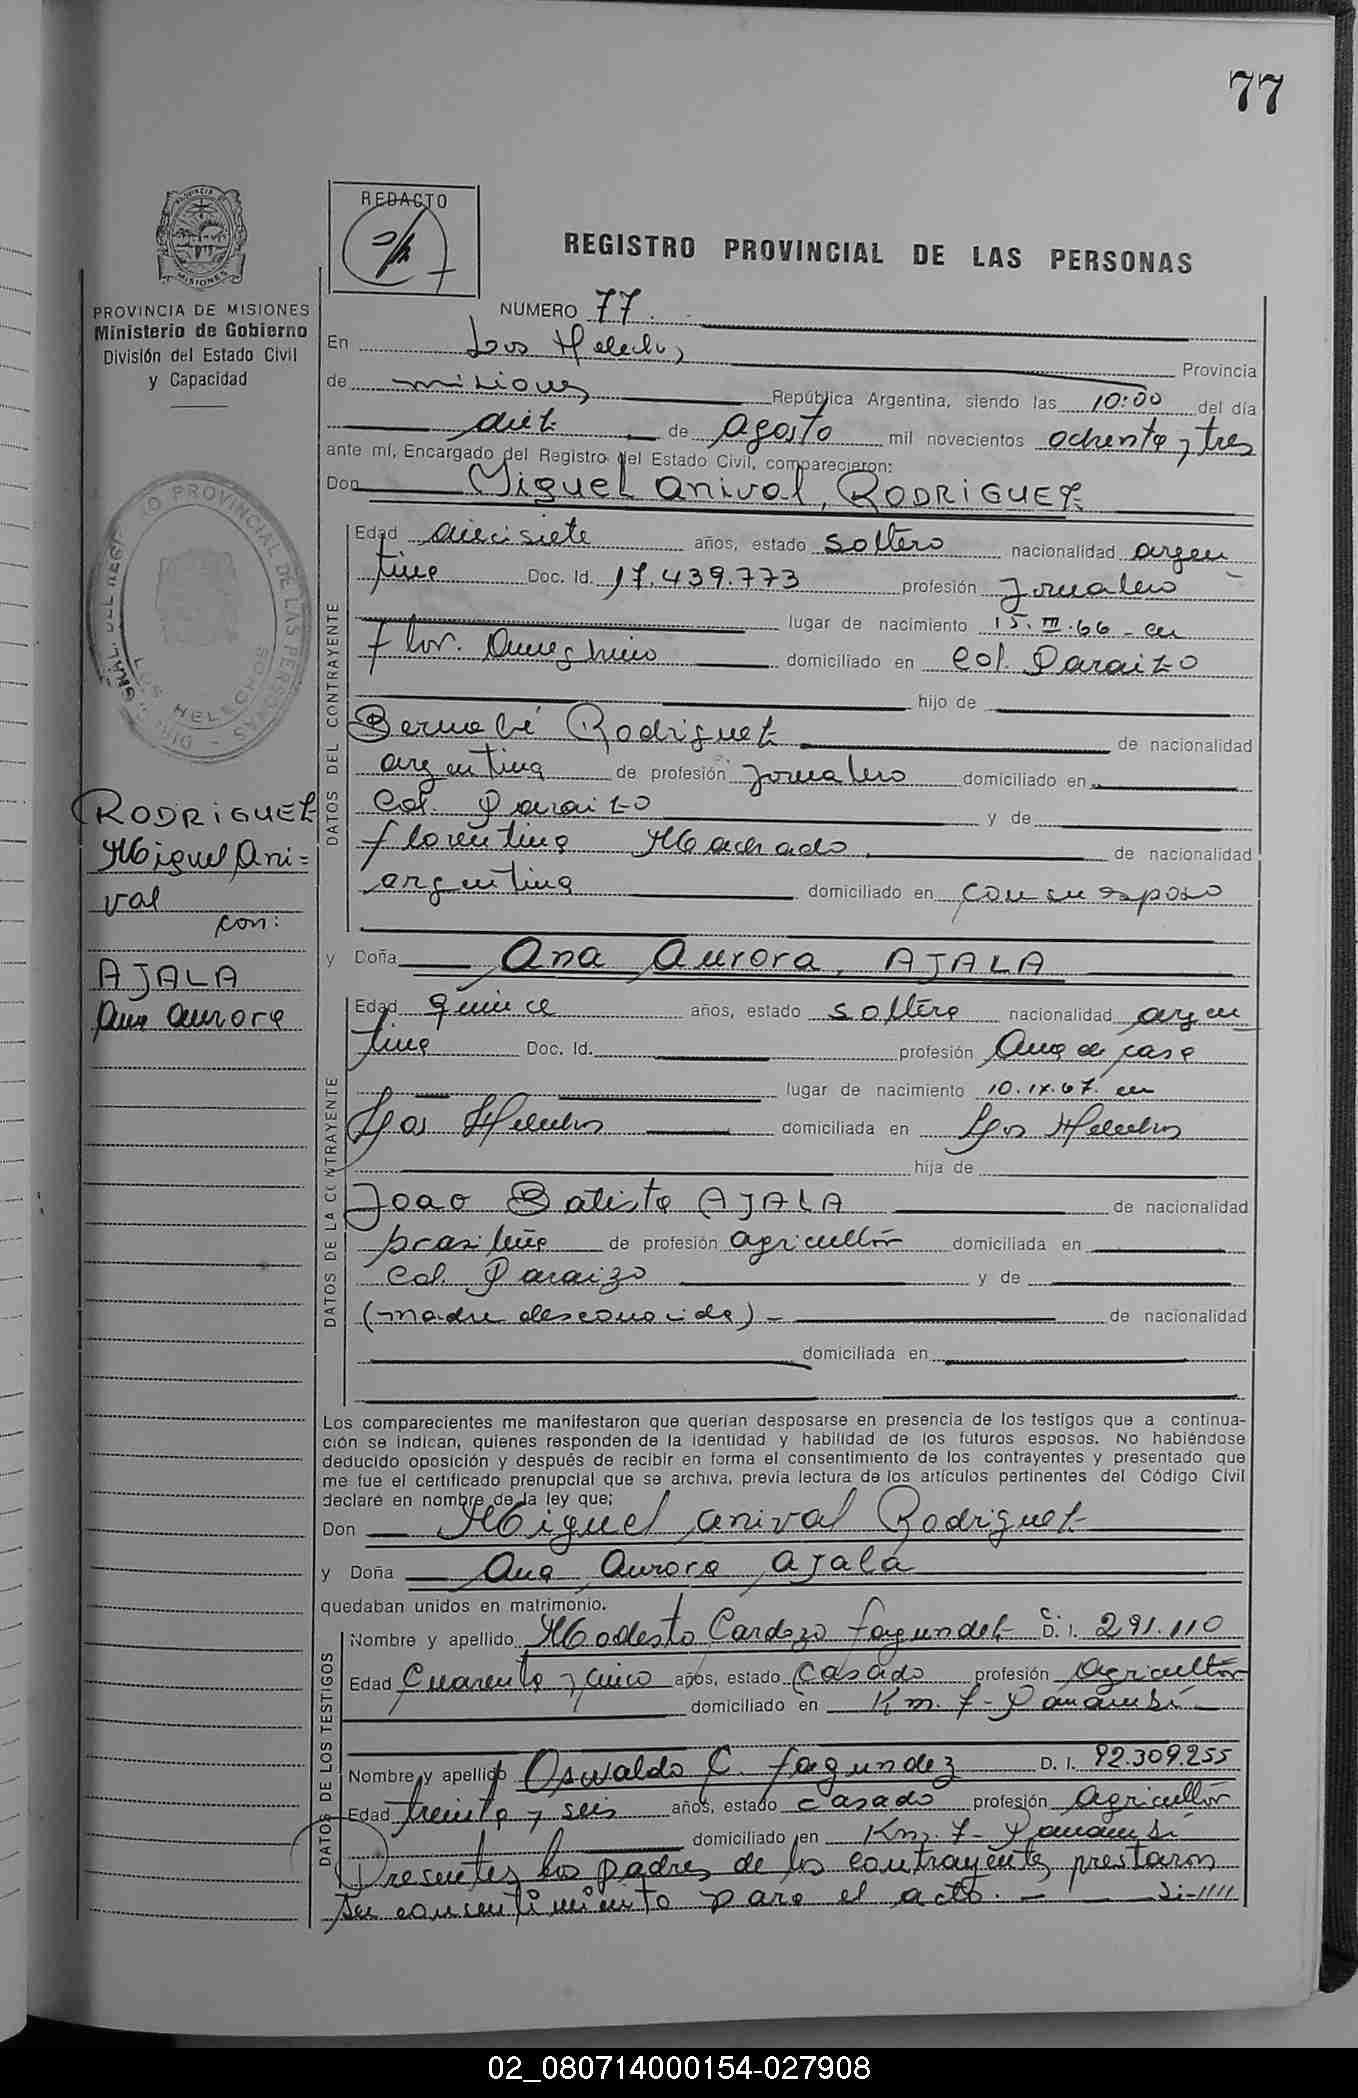 77
REDACTO
REGISTRO PROVINCIAL DE LAS PERSONAS
PROVINCIA DE MISIONES
Ministerio de Gobierno
División del Estado Civil
y Capacidad
NUMERO 77.
En Los Helechos Provincia
de misiones República Argentina, siendo las 10:00 del día
diez de Agosto mil novecientos ochenta y tres
ante mí, Encargado del Registro del Estado Civil, comparecieron:
Don Miguel Anival, RODRIGUEZ
DATOS DEL CONTRAYENTE
Edad diecisiete años, estado soltero nacionalidad argen
tina Doc. Id. 17.439.773 profesión Jornalero
lugar de nacimiento 15.III.66 - en
Flor. Ameghino domiciliado en Col. Paraizo
hijo de
Bernabé Rodriguez de nacionalidad
argentina de profesión Jornalero domiciliado en
Col. Paraizo y de
Florentina Machado de nacionalidad
argentina domiciliado en con su esposo
RODRIGUEZ
Miguel Ani=
val
con:
AJALA
Ana Aurora
y Doña Ana Aurora, AJALA
DATOS DE LA CONTRAYENTE
Edad quince años, estado soltera nacionalidad argen
tina Doc. Id. profesión Ama de casa
lugar de nacimiento 10.IX.67 en
Los Helechos domiciliada en Los Helechos
hija de
Joao Batista AJALA de nacionalidad
brasileña de profesión agricultor domiciliada en
Col. Paraizo y de
(madre desconocida) - de nacionalidad
domiciliada en
Los comparecientes me manifestaron que querían desposarse en presencia de los testigos que a continua-
ción se indican, quienes responden de la identidad y habilidad de los futuros esposos. No habiéndose
deducido oposición y después de recibir en forma el consentimiento de los contrayentes y presentado que
me fue el certificado prenupcial que se archiva, previa lectura de los artículos pertinentes del Código Civil
declaré en nombre de la ley que;
Don Miguel Anival Rodriguez
y Doña Ana Aurora Ajala
quedaban unidos en matrimonio.
DATOS DE LOS TESTIGOS
Nombre y apellido Modesto Cardozo Fagundez C. D. I. 291.110
Edad Cuarenta y cinco años, estado Casado profesión Agricultor
domiciliado en Km. 7 - Panambí
Nombre y apellido Oswaldo C. Fagundez D. I. 92.309.255
Edad treinta y seis años, estado casado profesión Agricultor
domiciliado en Km. 7 - Panambí
Presentes los padres de los contrayentes prestaron
su consentimiento para el acto. -
02_080714000154-027908